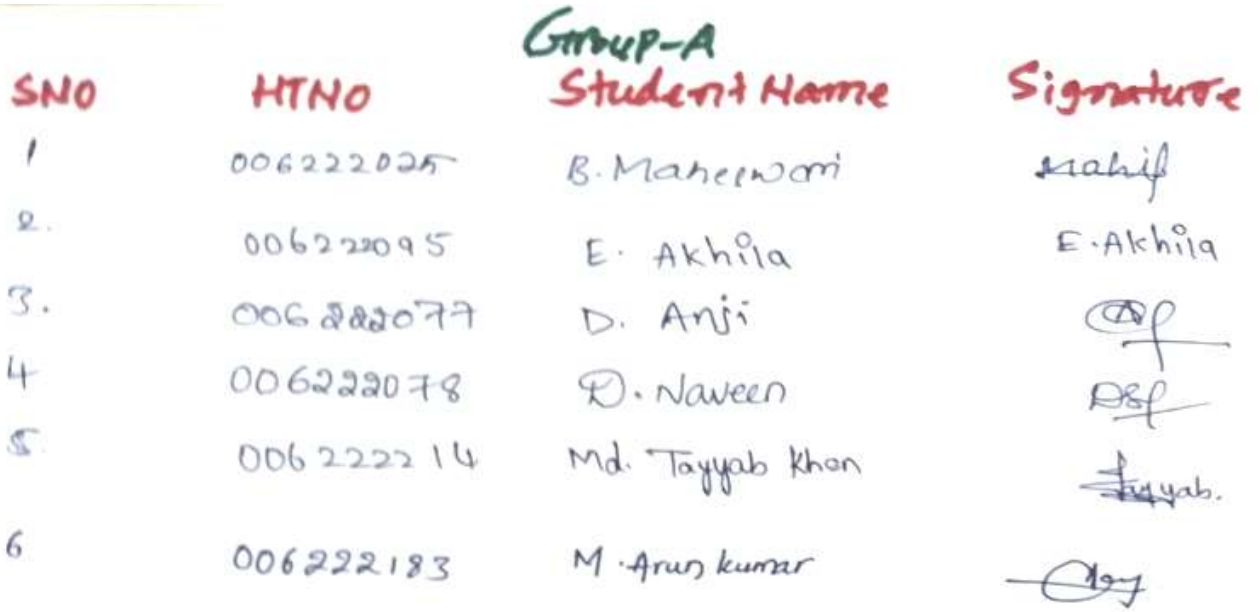 Group-A
SNO HTNO Student Name Signature
1 006222025 B. Maheewari
2. 006222095 E. Akhila E. Akhila
3. 006222077 D. Anji
4 006222078 D. Naveen
5. 006222214 Md. Tayyab Khan Tayyab.
6 006222183 M. Arun kumar